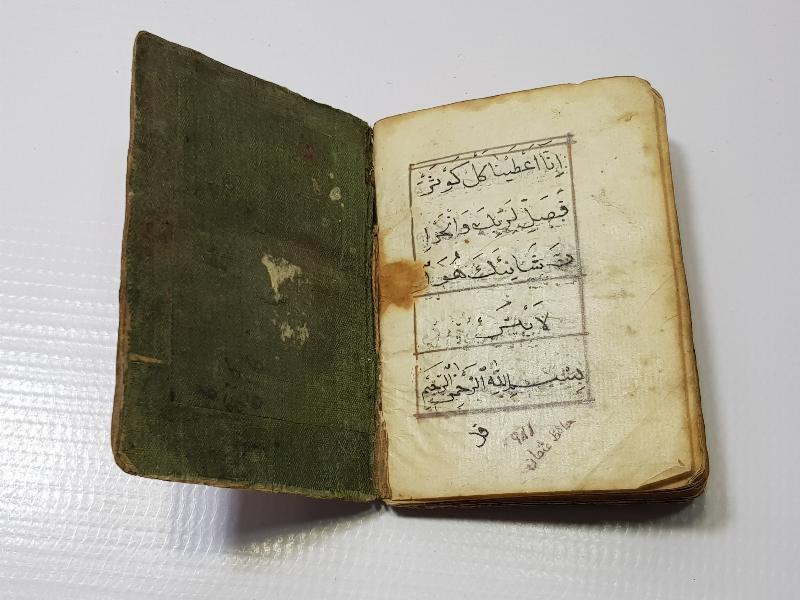 اِنَّا اَعْطَيْنَا كَل كَوْثَرَ
فَصَلِّ لِرَبِّكَ وَانْحَرْ اِ
نَّ شَانِئَكَ هُوَ اْ
لَابْتَرُ
بِسْمِ اللّٰهِ الرَّحْمٰنِ الرَّحِيْمِ
قل
حافظ عثمان